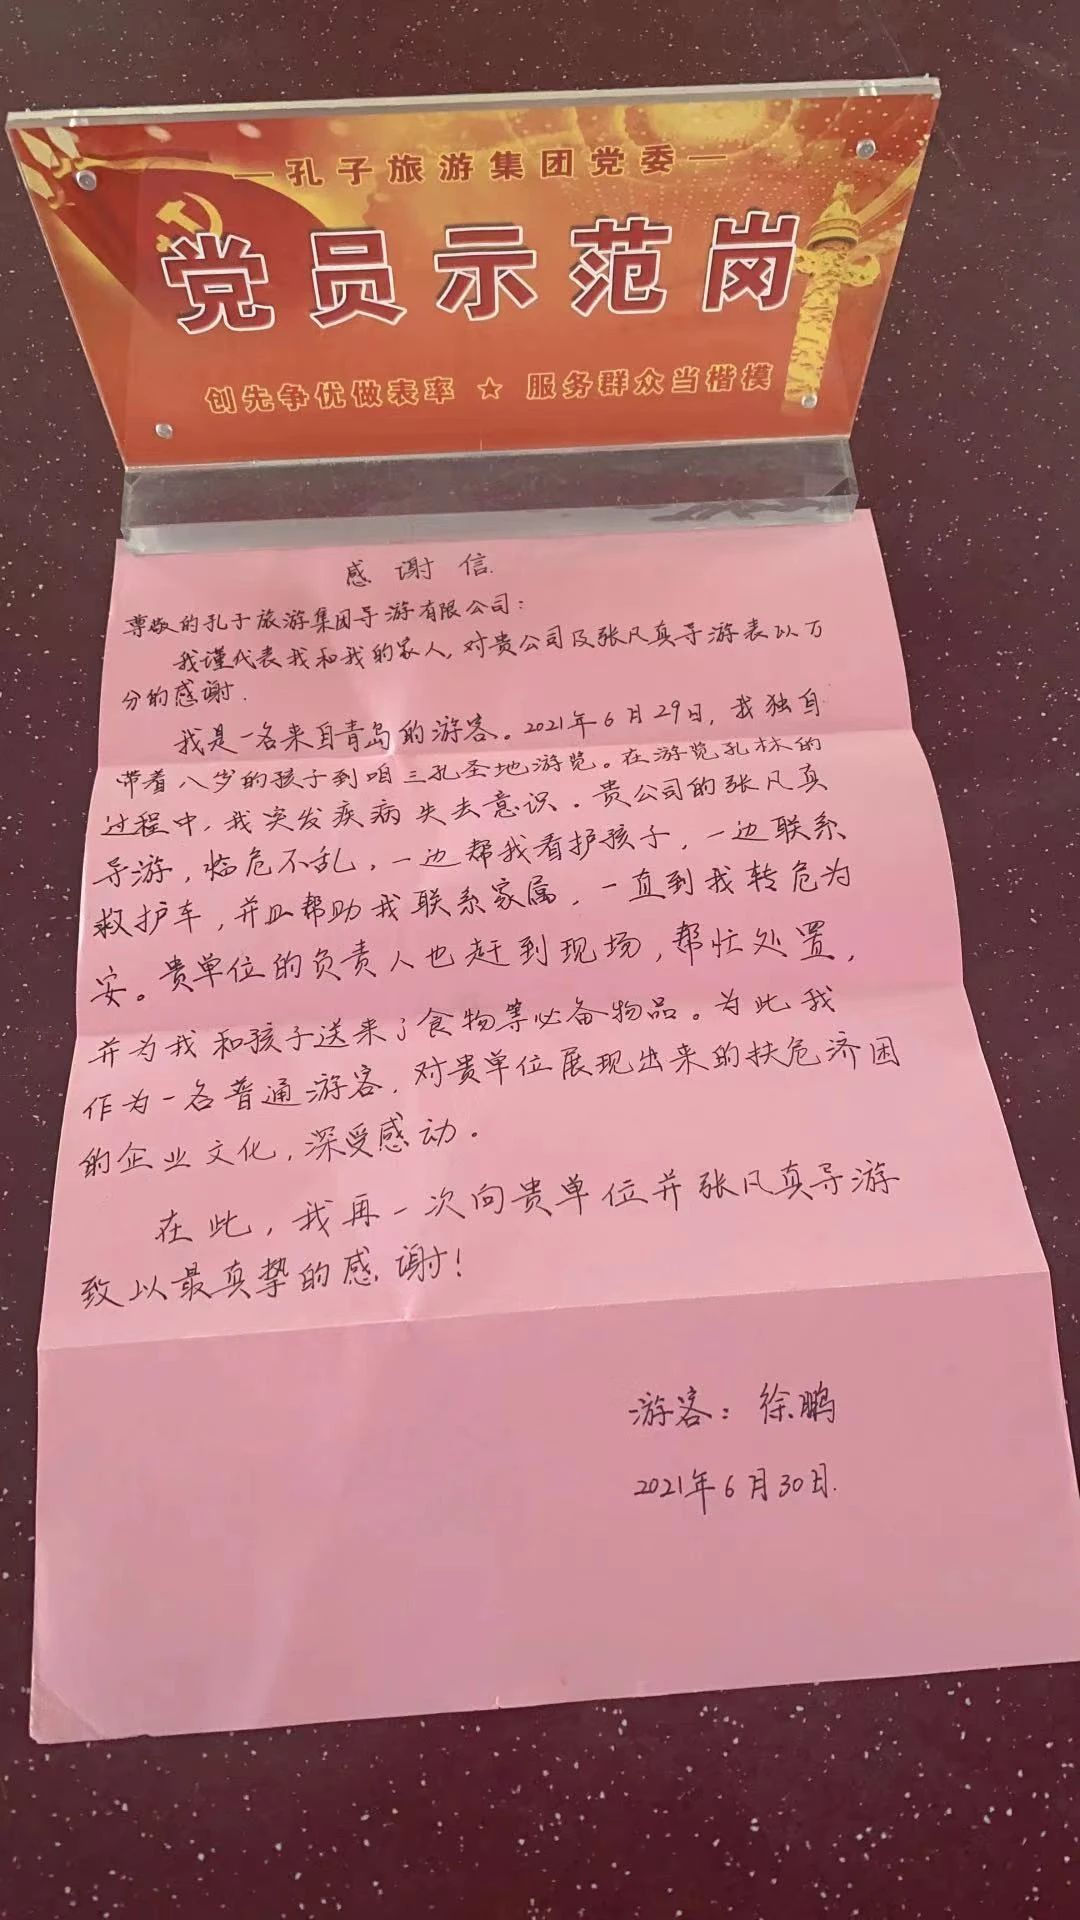 —孔子旅游集团党委—
党员示范岗
创先争优做表率 ★ 服务群众当楷模
感谢信
尊敬的孔子旅游集团导游有限公司：
我谨代表我和我的家人，对贵公司及张凡真导游表以万
分的感谢.
我是一名来自青岛的游客。2021年6月29日，我独自
带着八岁的孩子到咱三孔圣地游览。在游览孔林的
过程中，我突发疾病失去意识。贵公司的张凡真
导游，临危不乱，一边帮我看护孩子，一边联系
救护车，并且帮助我联系家属，一直到我转危为
安。贵单位的负责人也赶到现场，帮忙处置，
并为我和孩子送来了食物等必备物品。为此我
作为一名普通游客，对贵单位展现出来的扶危济困
的企业文化，深受感动。
在此，我再一次向贵单位并张凡真导游
致以最真挚的感谢！
游客：徐鹏
2021年6月30日.